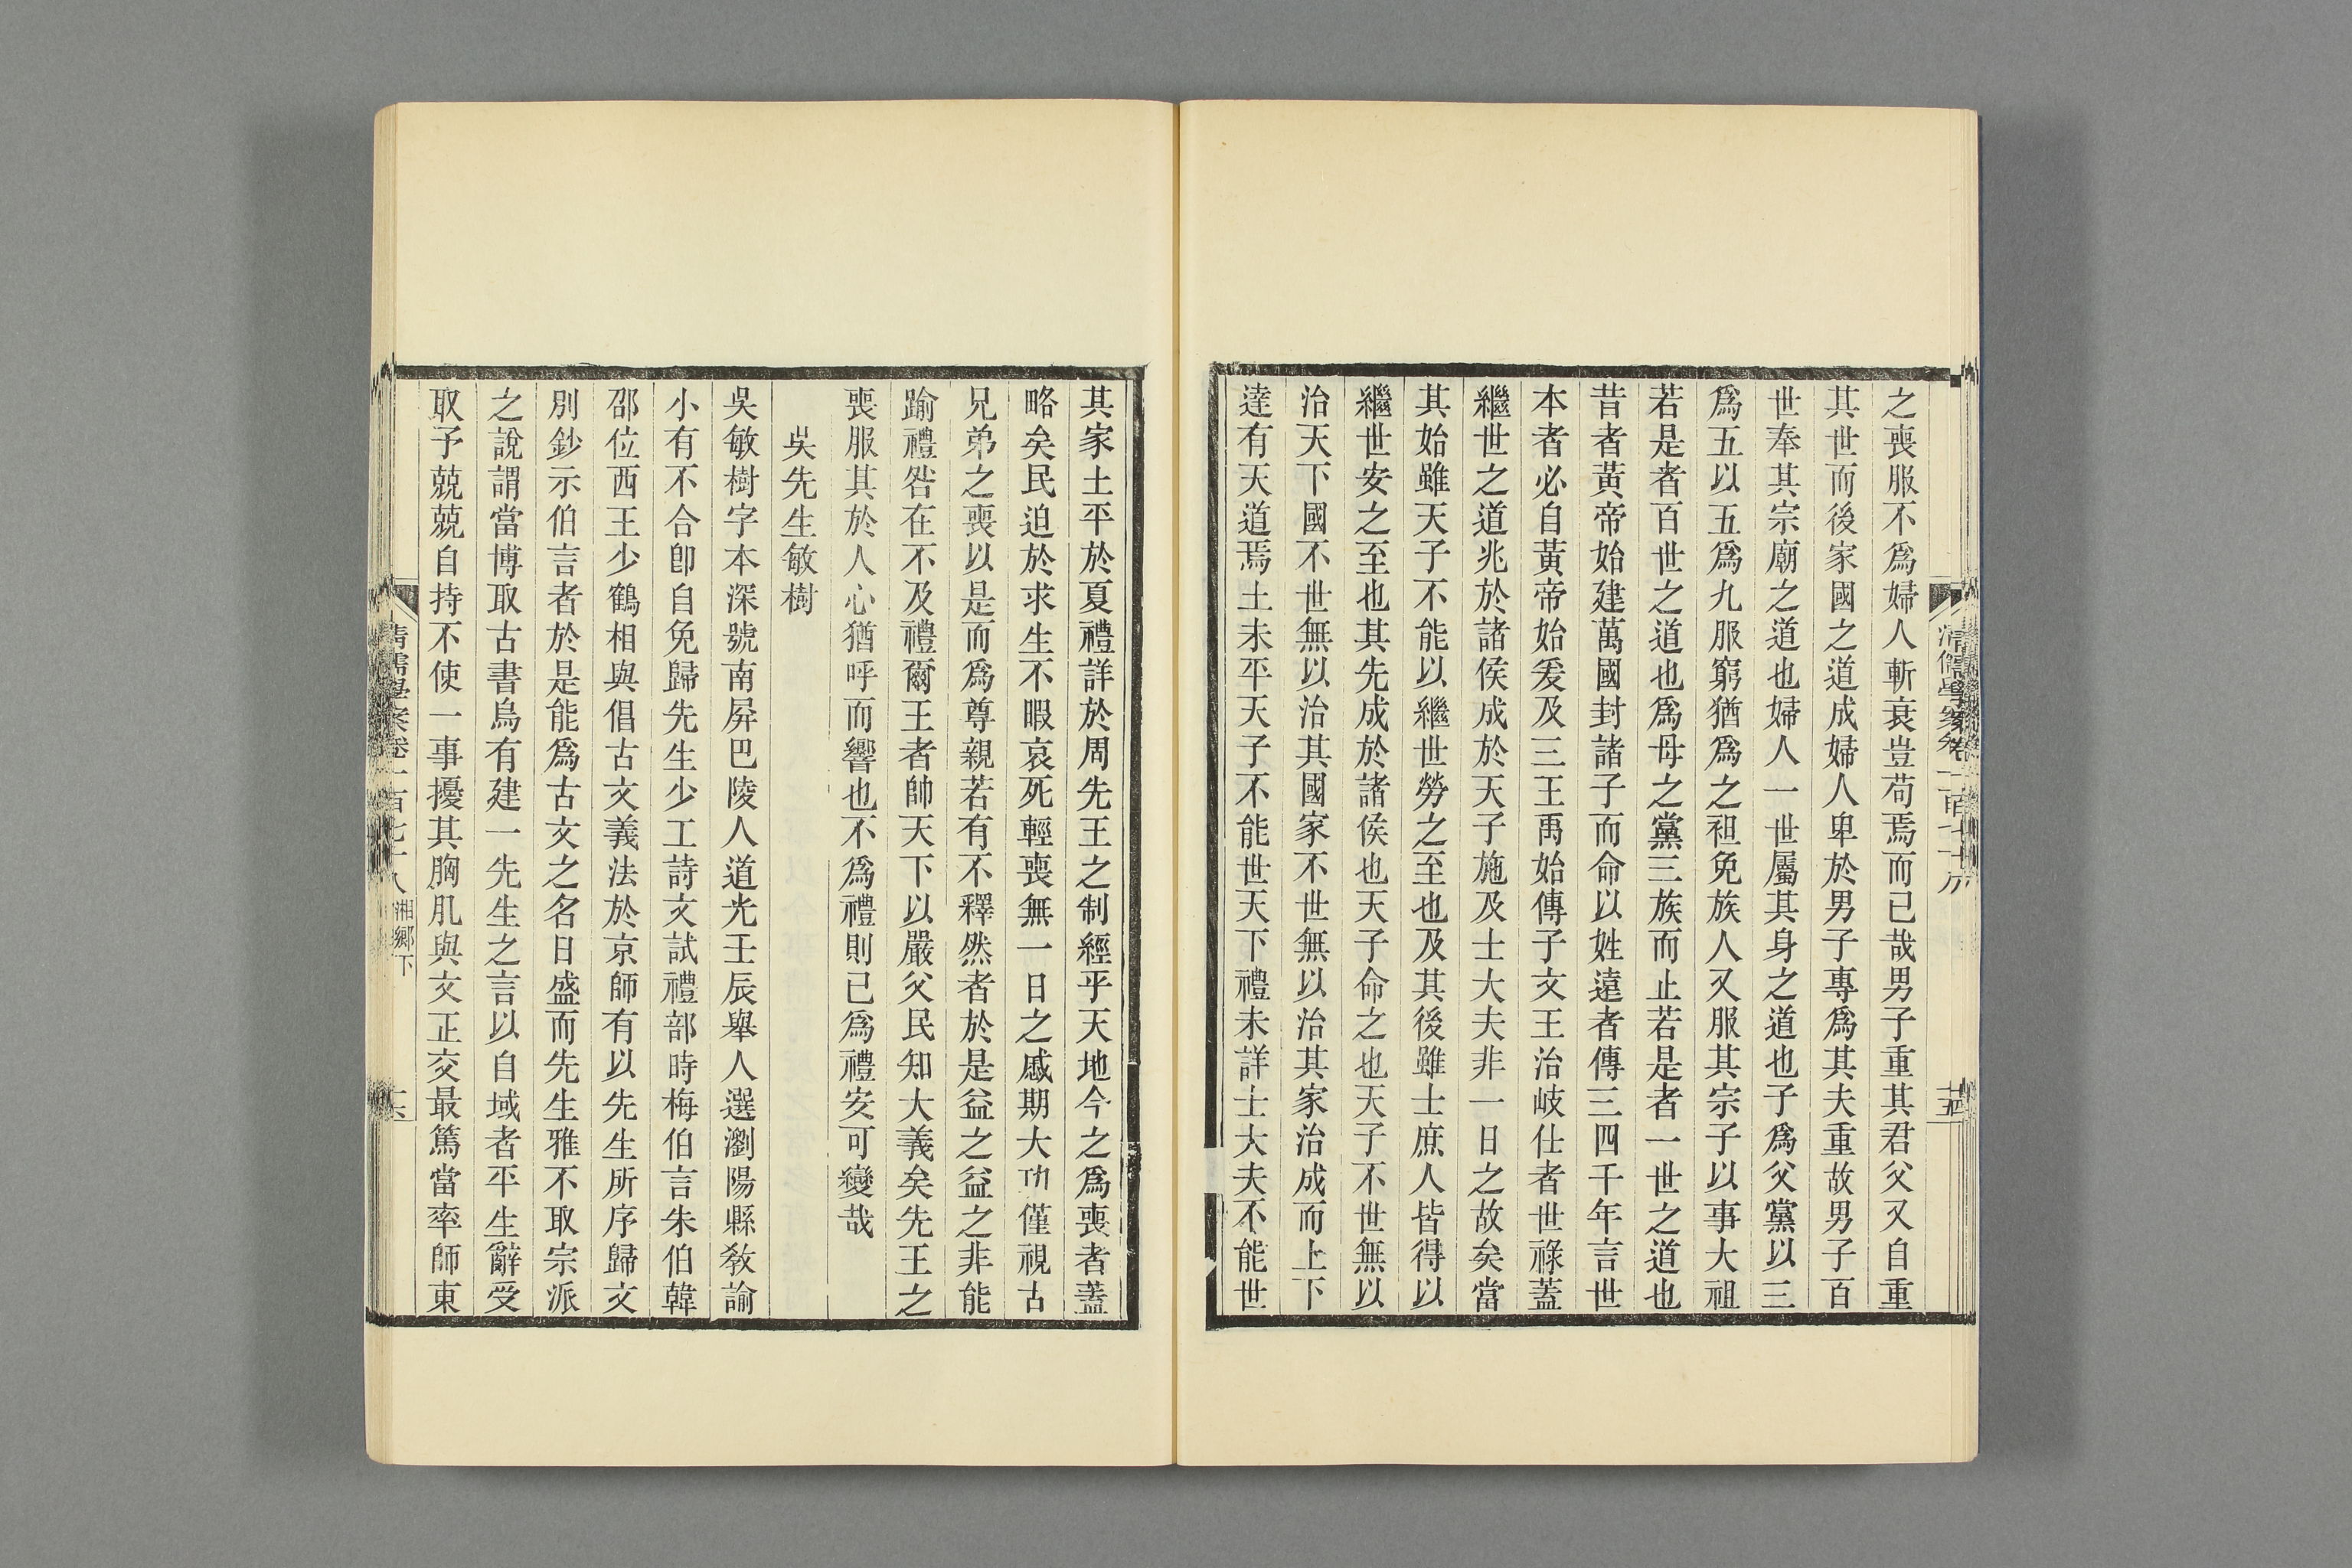 之喪服不爲婦人斬衰豈苟焉而已哉男子重其君父又自重
其世而後家國之道成婦人卑於男子專爲其夫重故男子百
世奉其宗廟之道也婦人一世屬其身之道也子爲父黨以三
爲五以五爲九服窮猶爲之袒免族人又服其宗子以事大祖
若是者百世之道也爲母之黨三族而止若是者一世之道也
昔者黃帝始建萬國封諸子而命以姓遠者傳三四千年言世
本者必自黃帝始爰及三王禹始傳子文王治岐仕者世祿蓋
繼世之道兆於諸侯成於天子施及士大夫非一日之故矣當
其始雖天子不能以繼世勞之至也及其後雖士庶人皆得以
繼世安之至也其先成於諸侯也天子命之也天子不世無以
治天下國不世無以治其國家不世無以治其家治成而上下
達有天道焉土未平天子不能世天下禮未詳士大夫不能世
其家土平於夏禮詳於周先王之制經乎天地今之爲喪者蓋
略矣民迫於求生不暇哀死輕喪無一日之慼期大功僅視古
兄弟之喪以是而爲尊親若有不釋然者於是益之益之非能
踰禮咎在不及禮爾王者帥天下以嚴父民知大義矣先王之
喪服其於人心猶呼而響也不爲禮則已爲禮安可變哉
吳先生敏樹
吳敏樹字本深號南屏巴陵人道光壬辰舉人選瀏陽縣教諭
小有不合卽自免歸先生少工詩文試禮部時梅伯言朱伯韓
邵位西王少鶴相與倡古文義法於京師有以先生所序歸文
別鈔示伯言者於是能爲古文之名日盛而先生雅不取宗派
之說謂當博取古書烏有建一先生之言以自域者平生辭受
取予兢兢自持不使一事擾其胸肌與文正交最篤當率師東
清儒學案卷一百七十八 湘鄉下